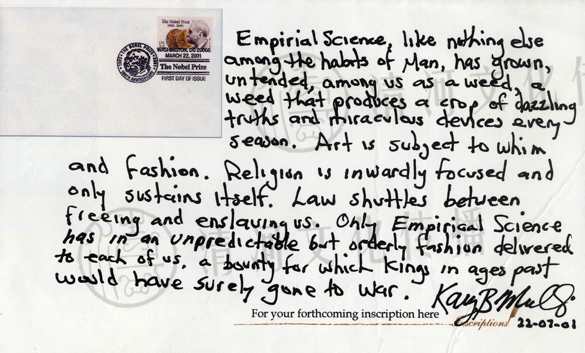 The Nobel Prize
WASHINGTON, DC 20066
MARCH 22, 2001
The Nobel Prize
FIRST DAY OF ISSUE
Empirial Science, like nothing else
among the habits of Man, has grown,
untended, among us as a weed, a
weed that produces a crop of dazzling
truths and miraculous devices every
season. Art is subject to whim
and fashion. Religion is inwardly focused and
only sustains itself. Law shuttles between
freeing and enslaving us. Only Empirical Science
has in an unpredictable but orderly fashion delivered
to each of us, a bounty for which Kings in ages past
would have surely gone to war. Kary B Mullis
For your forthcoming inscription here
scriptions 22-07-01